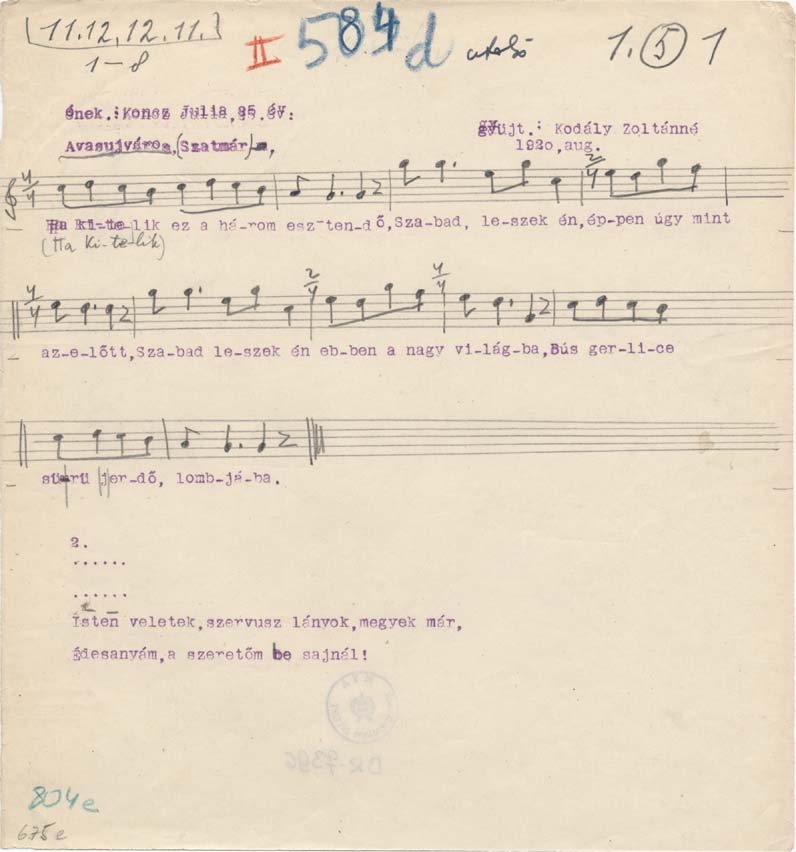 11.12.12.11.
1-8
II 584d utolsó 1.(5) 1
ének.:Koncz Julia 95 év.
Avasujváros,(Szatmár)
gyüjt.: Kodály Zoltánné
1920,aug.
4/4 2/4
Ha ki-te-lik ez a há-rom esz-ten-dő,Sza-bad, le-szek én,ép-pen úgy mint
(Ha Ki-te-lik)
4/4 2/4 4/4
az-e-lőtt,Sza-bad le-szek én eb-ben a nagy vi-lág-ba,Bús ger-li-ce
sü-rü jer-dő, lomb-já-ba.
2.
......
......
Isten veletek,szervusz lányok,megyek már,
Édesanyám,a szeretőm be sajnál!
804e
675e